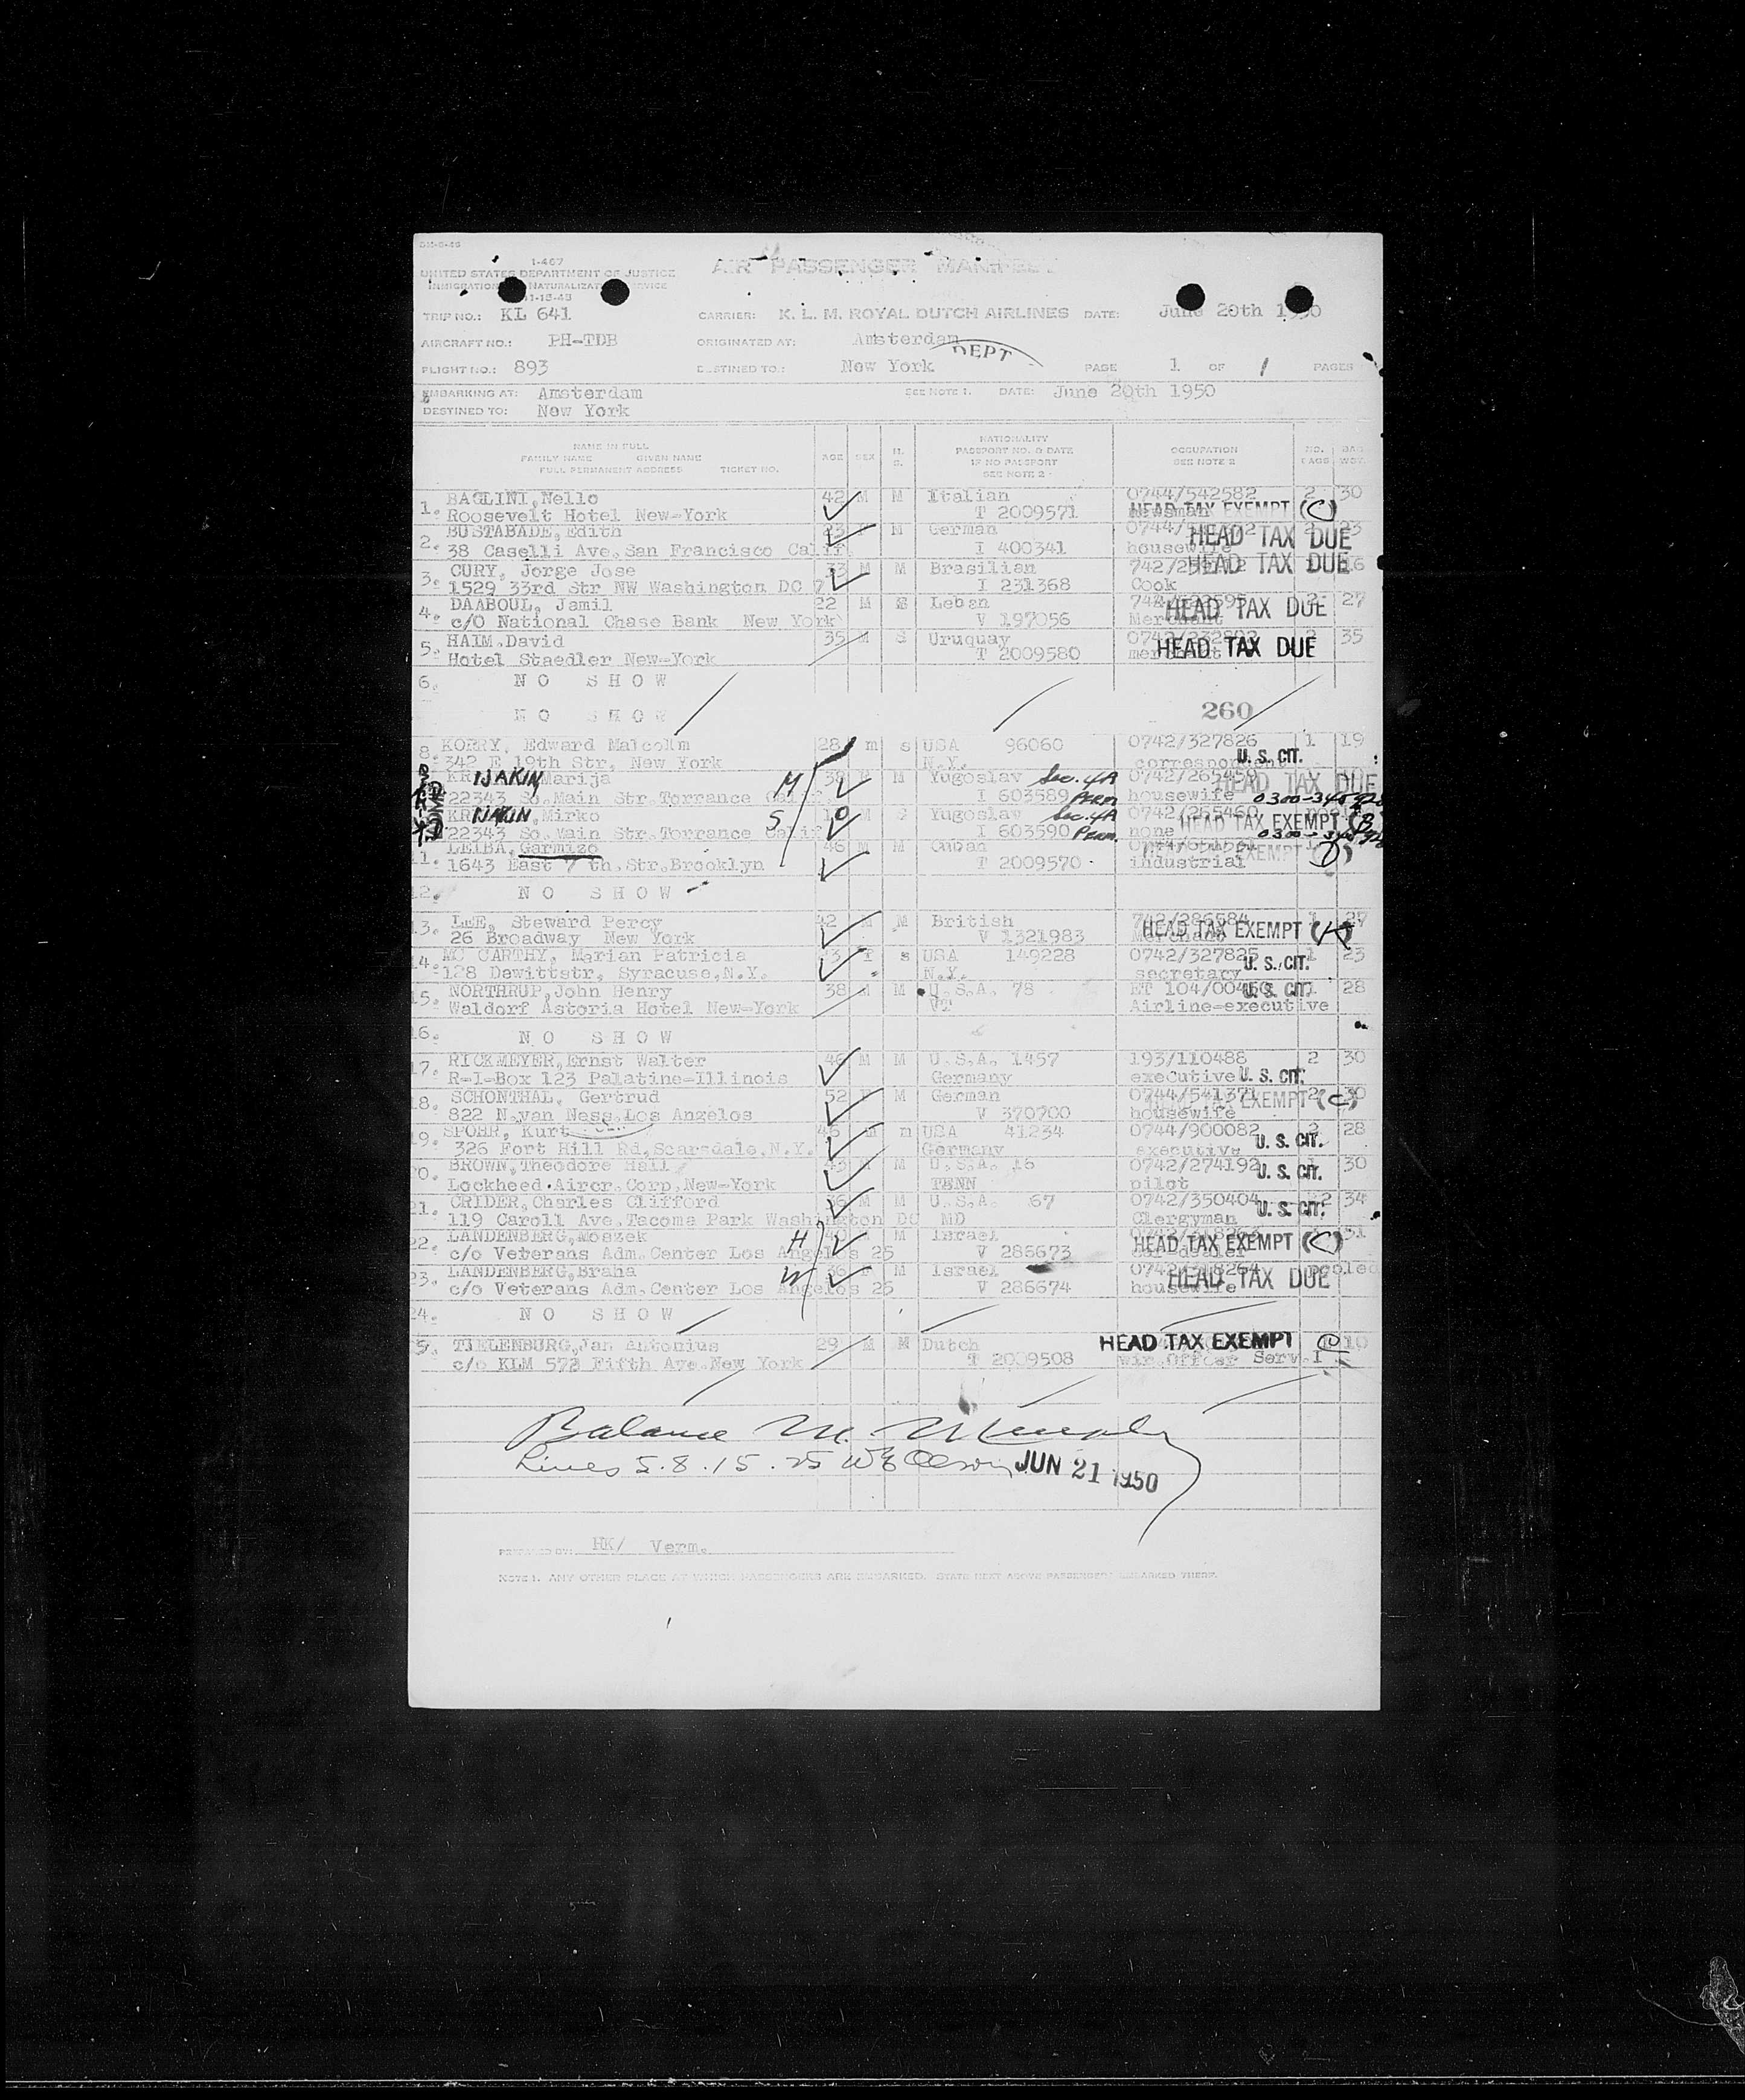 1-467
UNITED STATES DEPARTMENT OF JUSTICE
IMMIGRATION NATURALIZATION SERVICE
AIR PASSENGER MANIFEST
TRIP NO.: KL 641 CARRIER: K. L. M. ROYAL DUTCH AIRLINES DATE: June 20th 1950
AIRCRAFT NO.: PH-TDB ORIGINATED AT: Amsterdam
DEPT
FLIGHT NO.: 893 DESTINED TO.: New York PAGE 1 OF 1 PAGES
EMBARKING AT: Amsterdam SEE NOTE 1. DATE: June 20th 1950
DESTINED TO: New York
NAME IN FULL
FAMILY NAME GIVEN NAME
FULL PERMANENT ADDRESS TICKET NO.
AGE SEX M. S.
NATIONALITY
PASSPORT NO. & DATE
IF NO PASSPORT
SEE NOTE 2
OCCUPATION
SEE NOTE 2
NO. BAGS BAG WGT.
1. BAGLINI, Nello 42 M M Italian 0744/542582 2 30
Roosevelt Hotel New-York T 2009571 newsman HEAD TAX EXEMPT (C)
2. BUSTABADE, Edith 23 F M German HEAD TAX DUE 23
38 Caselli Ave, San Francisco Calif. I 400341 housewife
3. CURY, Jorge Jose 33 M M Brasilian HEAD TAX DUE 16
1529 33rd Str NW Washington DC 7 I 231368 Cook
4. DAABOUL, Jamil 22 M Leban HEAD TAX DUE 2 27
c/O National Chase Bank New York V 197056 Merchant
5. HAIM, David 35 M S Uruquay HEAD TAX DUE 2 35
Hotel Staedler New-York T 2009580 merchant
6. NO SHOW
NO SHOW 260
8. KORRY, Edward Malcolm 28 m s USA 96060 0742/327826 1 19
342 E 19th Str, New York N.Y. correspondent U. S. CIT.
KR IJAKIN, Marija M 38 M Yugoslav Sec. 4A 0742/265459 HEAD TAX DUE
22343 So. Main Str. Torrance Calif I 603589 PERM. housewife
KR IJAKIN, Mirko S 10 M S Yugoslav Sec. 4A 0742/265460 HEAD TAX EXEMPT
22343 So. Main Str. Torrance Calif I 603590 PERM. none
11. LEIBA, Garmizo 46 M M Cuban EXEMPT
1643 East 7 th, Str, Brooklyn T 2009570 industrial
12. NO SHOW
13. LEE, Steward Percy 42 M M British 742/286584 1 27
26 Broadway New York V 1321983 Merchant HEAD TAX EXEMPT
14. MC CARTHY, Marian Patricia f s USA 149228 0742/327825 1 23
128 Dewittstr, Syracuse, N.Y. N.Y. secretary U. S. CIT.
15. NORTHRUP, John Henry 38 M M U.S.A. 78 U. S. CIT. 28
Waldorf Astoria Hotel New-York VT Airline-executive
16. NO SHOW
17. RICKMEYER, Ernst Walter 46 M M U.S.A. 1457 193/110488 2 30
R-1-Box 123 Palatine-Illinois Germany executive U. S. CIT.
18. SCHONTHAL, Gertrud 52 F M German 0744/541371 2 30
822 N. van Ness, Los Angelos V 370700 housewife EXEMPT (C)
19. SPOHR, Kurt 46 m m USA 41234 0744/900082 2 28
326 Fort Hill Rd, Scarsdale, N.Y. Germany executive U. S. CIT.
20. BROWN, Theodore Hall 43 M M U.S.A. 16 0742/274192 30
Lockheed. Aircr. Corp, New-York TENN pilot U. S. CIT.
21. CRIDER, Charles Clifford 36 M M U.S.A. 67 0742/350404 2 34
119 Caroll Ave, Tacoma Park Washington DC MD Clergyman U. S. CIT.
22. LANDENBERG, Moszek H 40 M M Israel 51
c/o Veterans Adm. Center Los Angelos 25 V 286673 HEAD TAX EXEMPT (C)
23. LANDENBERG, Braha W 36 F M Israel 0742/318264 pooled
c/o Veterans Adm. Center Los Angelos 25 V 286674 housewife HEAD TAX DUE
24. NO SHOW
25. TIELENBURG, Jan Antonius 29 M M Dutch HEAD TAX EXEMPT 10
c/o KLM 572 Fifth Ave. New York T 2009508 Serv.
Balance M. Murphy
Lines 5. 8. 15. 25 JUN 21 1950
PREPARED BY: HK/ Verm.
NOTE 1. ANY OTHER PLACE AT WHICH PASSENGERS ARE EMBARKED. STATE NEXT ABOVE PASSENGERS EMBARKED THERE.